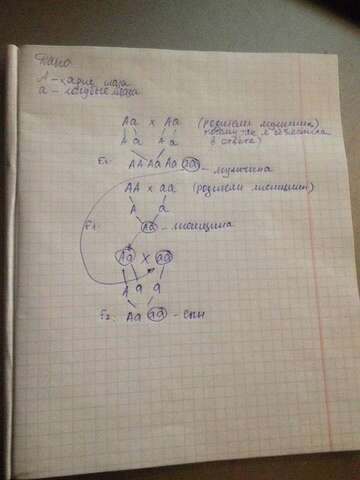 Дано
А - карие глаза
а - голубые глаза
Аа х Аа (родители мужчины)
А а А а потому так я объяснила
в ответе)
F₁: АА Аа Аа аа - мужчина
АА х аа (родители женщины)
А а
F₁: Аа - женщина
Аа х аа
А а а
F₂: Аа аа - сын